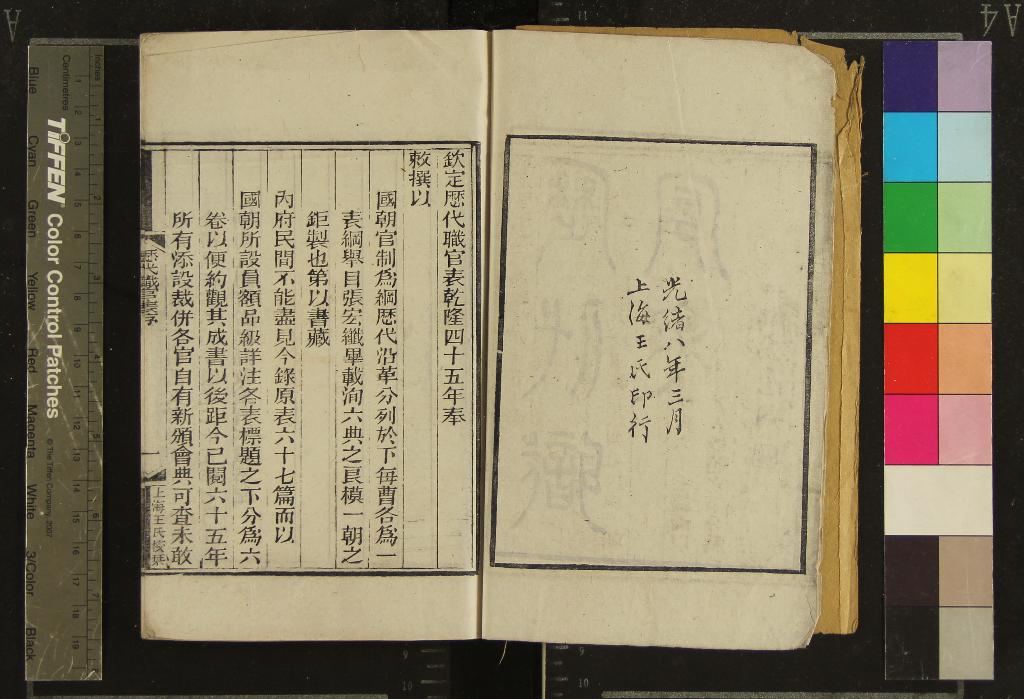 光緒八年三月
上海王氏印行
欽定歷代職官表乾隆四十五年奉
敕撰以
國朝官制爲綱歷代沿革分列於下每曹各爲一
表綱舉目張宏纖畢載洵六典之良模一朝之
鉅製也第以書藏
內府民間不能盡見今錄原表六十七篇而以
國朝所設員額品級詳注各表標題之下分爲六
卷以便約觀其成書以後距今已閱六十五年
所有添設裁併各官自有新頒會典可查未敢
歷代職官表序
一
上海王氏校栞
TIFFEN Color Control Patches
© The Tiffen Company, 2007
Centimetres
Inches
Blue
Cyan
Green
Yellow
Red
Magenta
White
3/Color
Black
A4
A